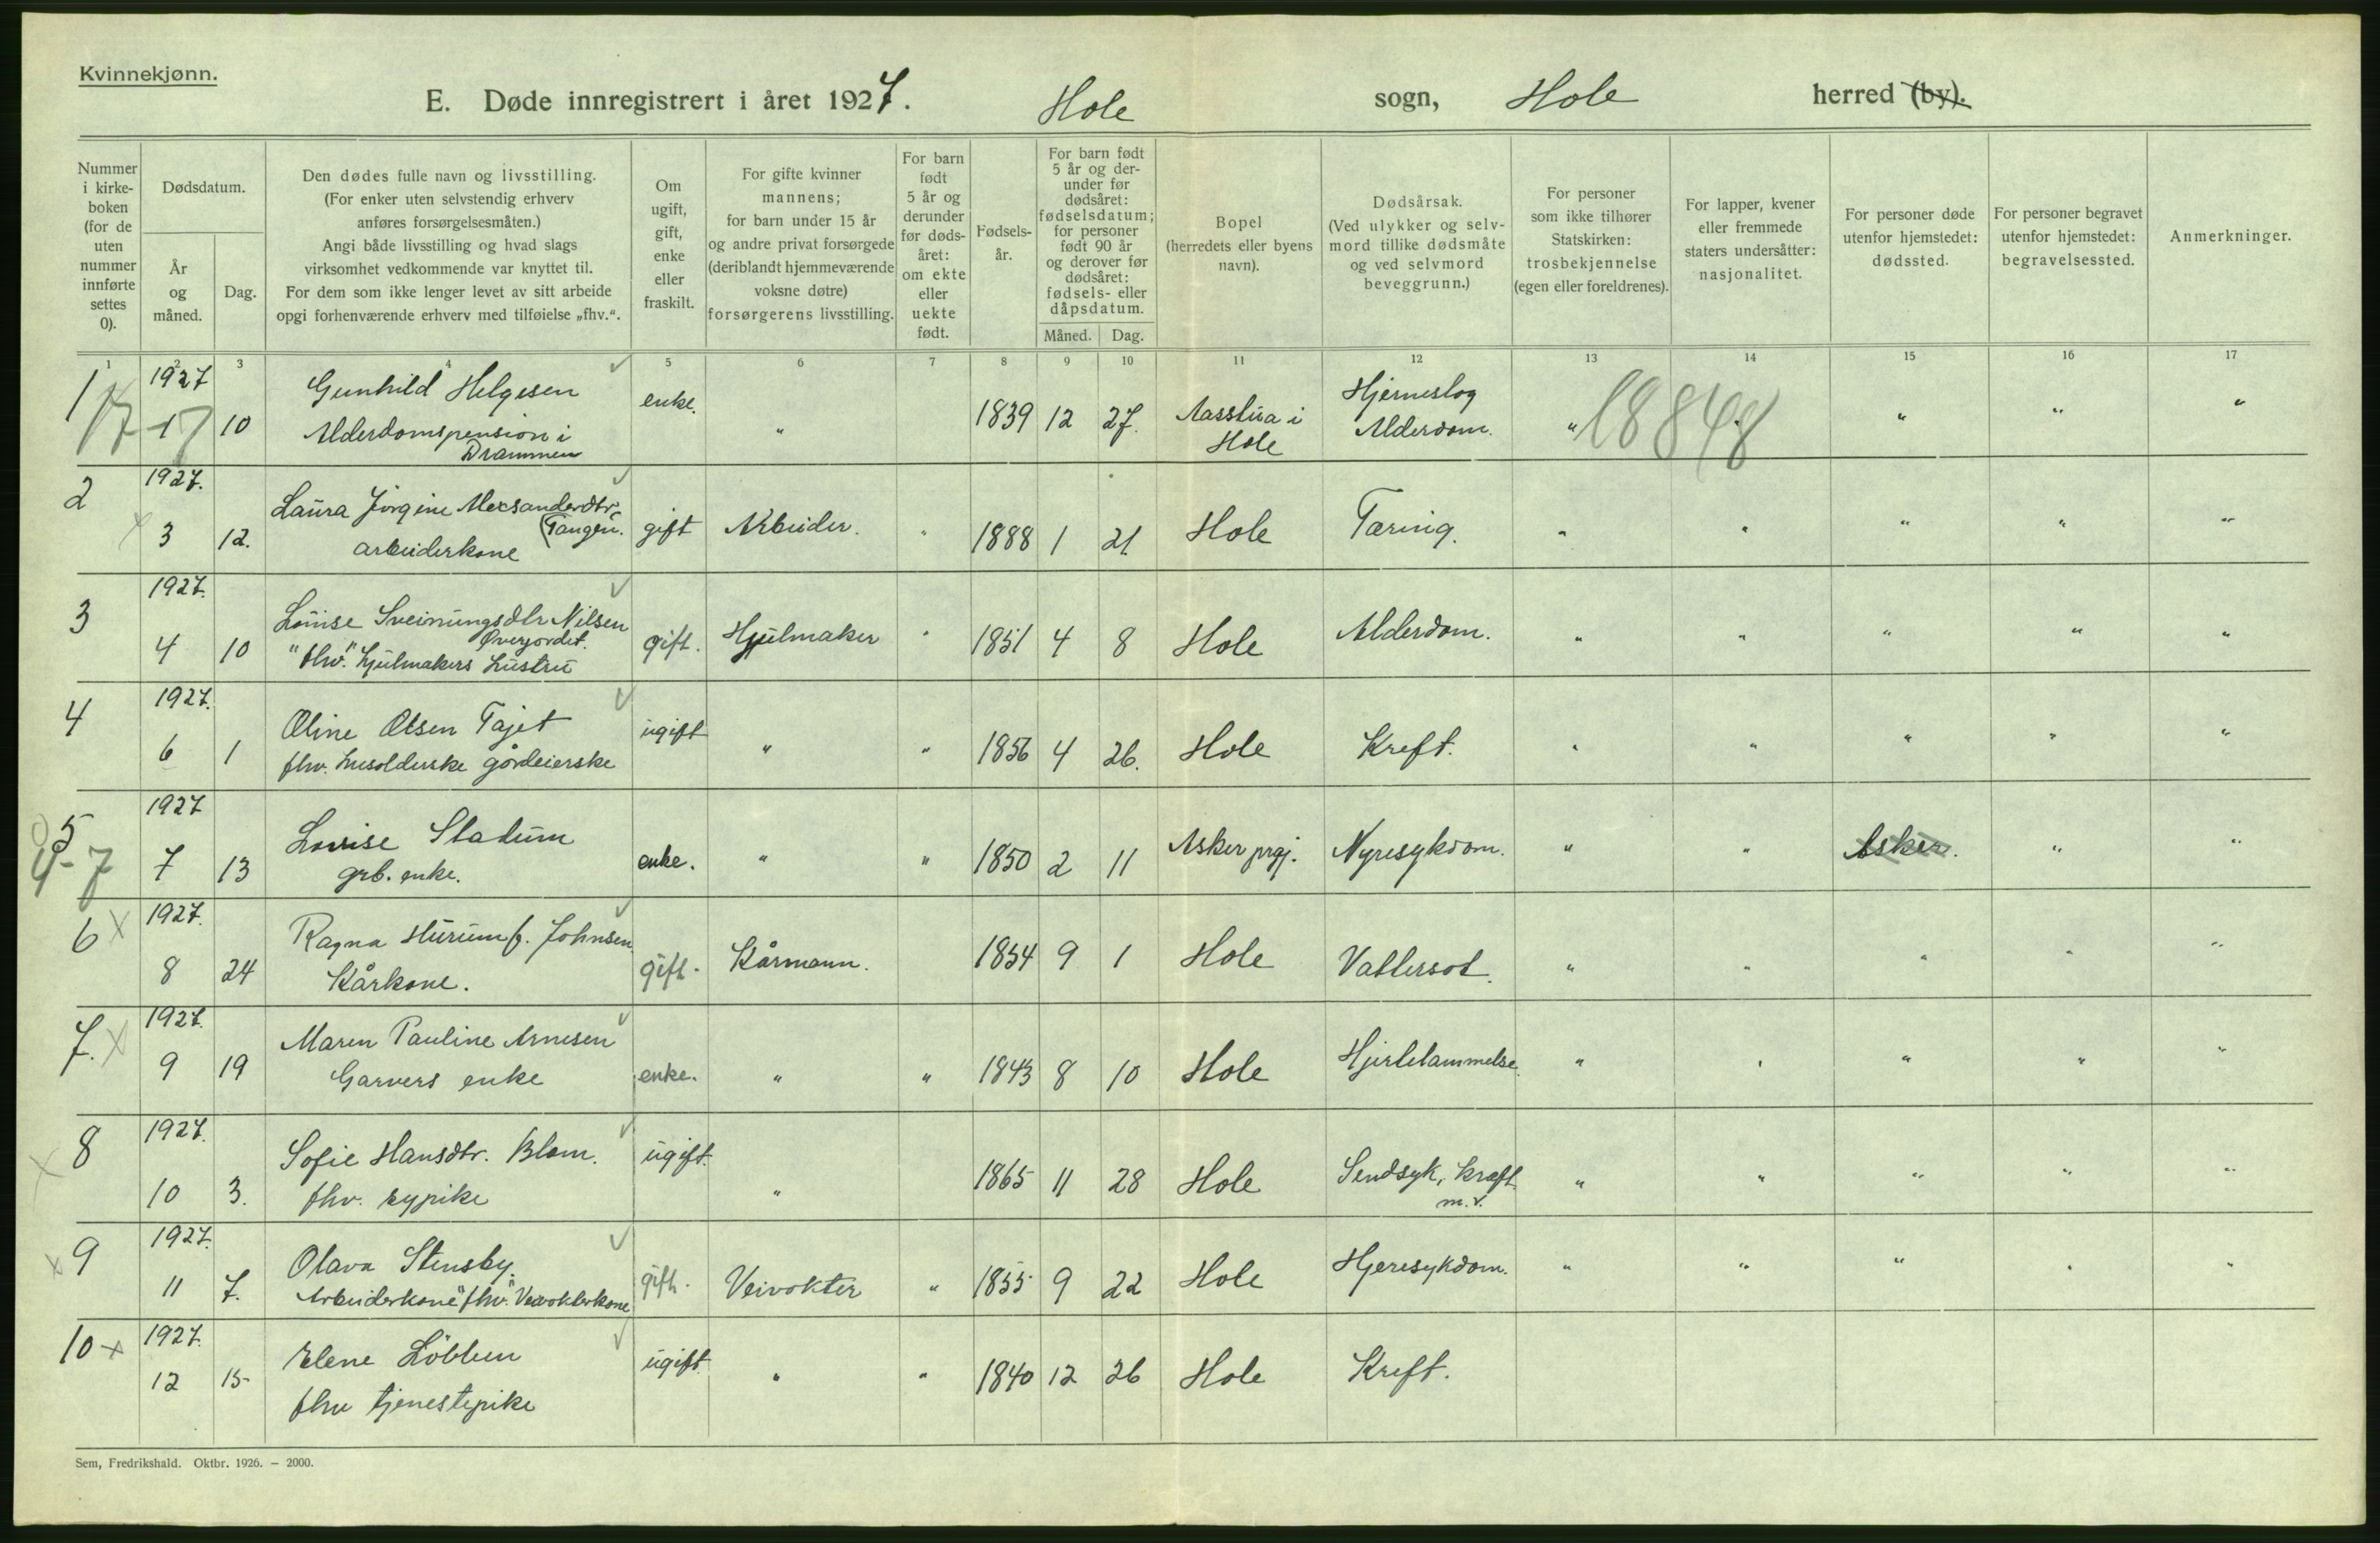 Kvinnekjønn.
E. Døde innregistrert i året 1927. Hole sogn, Hole herred (by).
Nummer i kirke-boken (for de uten nummer innførte settes 0).
Dødsdatum.
År og måned.
Dag.
Den dødes fulle navn og livsstilling.
(For enker uten selvstendig erhverv
anføres forsørgelsesmåten.)
Angi både livsstilling og hvad slags
virksomhet vedkommende var knyttet til.
For dem som ikke lenger levet av sitt arbeide
opgi forhenværende erhverv med tilføielse „fhv.“.
Om ugift, gift, enke eller fraskilt.
For gifte kvinner
mannens;
for barn under 15 år
og andre privat forsørgede
(deriblandt hjemmeværende
voksne døtre)
forsørgerens livsstilling.
For barn født 5 år og derunder før døds-året: om ekte eller uekte født.
Fødsels-år.
For barn født
5 år og der-
under før
dødsåret:
fødselsdatum;
for personer
født 90 år
og derover før
dødsåret:
fødsels- eller
dåpsdatum.
Måned. Dag.
Bopel
(herredets eller byens
navn).
Dødsårsak.
(Ved ulykker og selv-
mord tillike dødsmåte
og ved selvmord
beveggrunn.)
For personer
som ikke tilhører
Statskirken:
trosbekjennelse
(egen eller foreldrenes).
For lapper, kvener
eller fremmede
staters undersåtter:
nasjonalitet.
For personer døde
utenfor hjemstedet:
dødssted.
For personer begravet
utenfor hjemstedet:
begravelsessted.
Anmerkninger.
1 2 3 4 5 6 7 8 9 10 11 12 13 14 15 16 17
1 1927 10 Gunhild Helgesen enke. " 1839 12 27. Aasstua i Hjerneslag " " " "
Alderdomspension i Hole Alderdom.
Drammen
2 1927. Laura Jørgine Alexsanderdtr.
3 12. (Tangen. gift Arbeider. " 1888 1 21 Hole Tæring. " " " " "
arbeiderkone
3 1927. Louise Sveinungsdtr Nilsen
4 10 Øverjordet. gift. Hjulmaker " 1851 4 8 Hole Alderdom. " " " " "
"fhv." hjulmakers hustru
4 1927. Oline Olsen Tajet ugift
6 1 fhv. husolderske gårdeierske " " 1856 4 26. Hole Kreft. " " " " "
5 1927 Lovise Stadum
4-7 7 13 grb. enke. enke. " " 1850 2 11 Asker prgj. Nyresykdom. " " Asker. " "
6 x 1927. Ragna Hurum f. Johnsen
8 24 Kårkone. gift. Kårmann. 1854 9 1 Hole Vattersot. " " " " "
7. x 1927. Maren Pauline Arnesen
9 19 Garvers enke enke. " " 1843 8 10 Hole Hjertelammelse. " " " " "
x 8 1927. Sofie Hansdtr. Blom. ugift.
10 3. fhv. sypike " 1865 11 28 Hole Sindsyk, kræft " " " " "
m.v.
x 9 1927. Olava Stensby.
11 7. Arbeiderkone "fhv." Veivokterkone gift. Veivokter " 1855 9 22 Hole Hjertesykdom. " " " " "
10 x 1927. Elene Löbben ugift
12 15 fhv tjenestepike " " 1840 12 26 Hole Kreft.
Sem, Fredrikshald. Oktbr. 1926. — 2000.